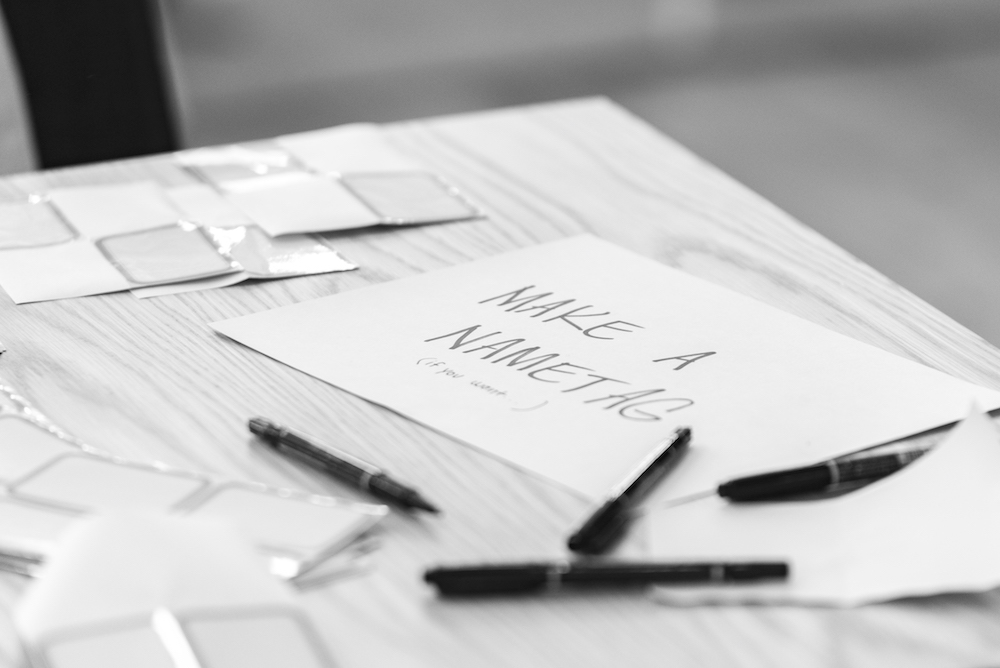 MAKE A
NAMETAG
(if you want...)